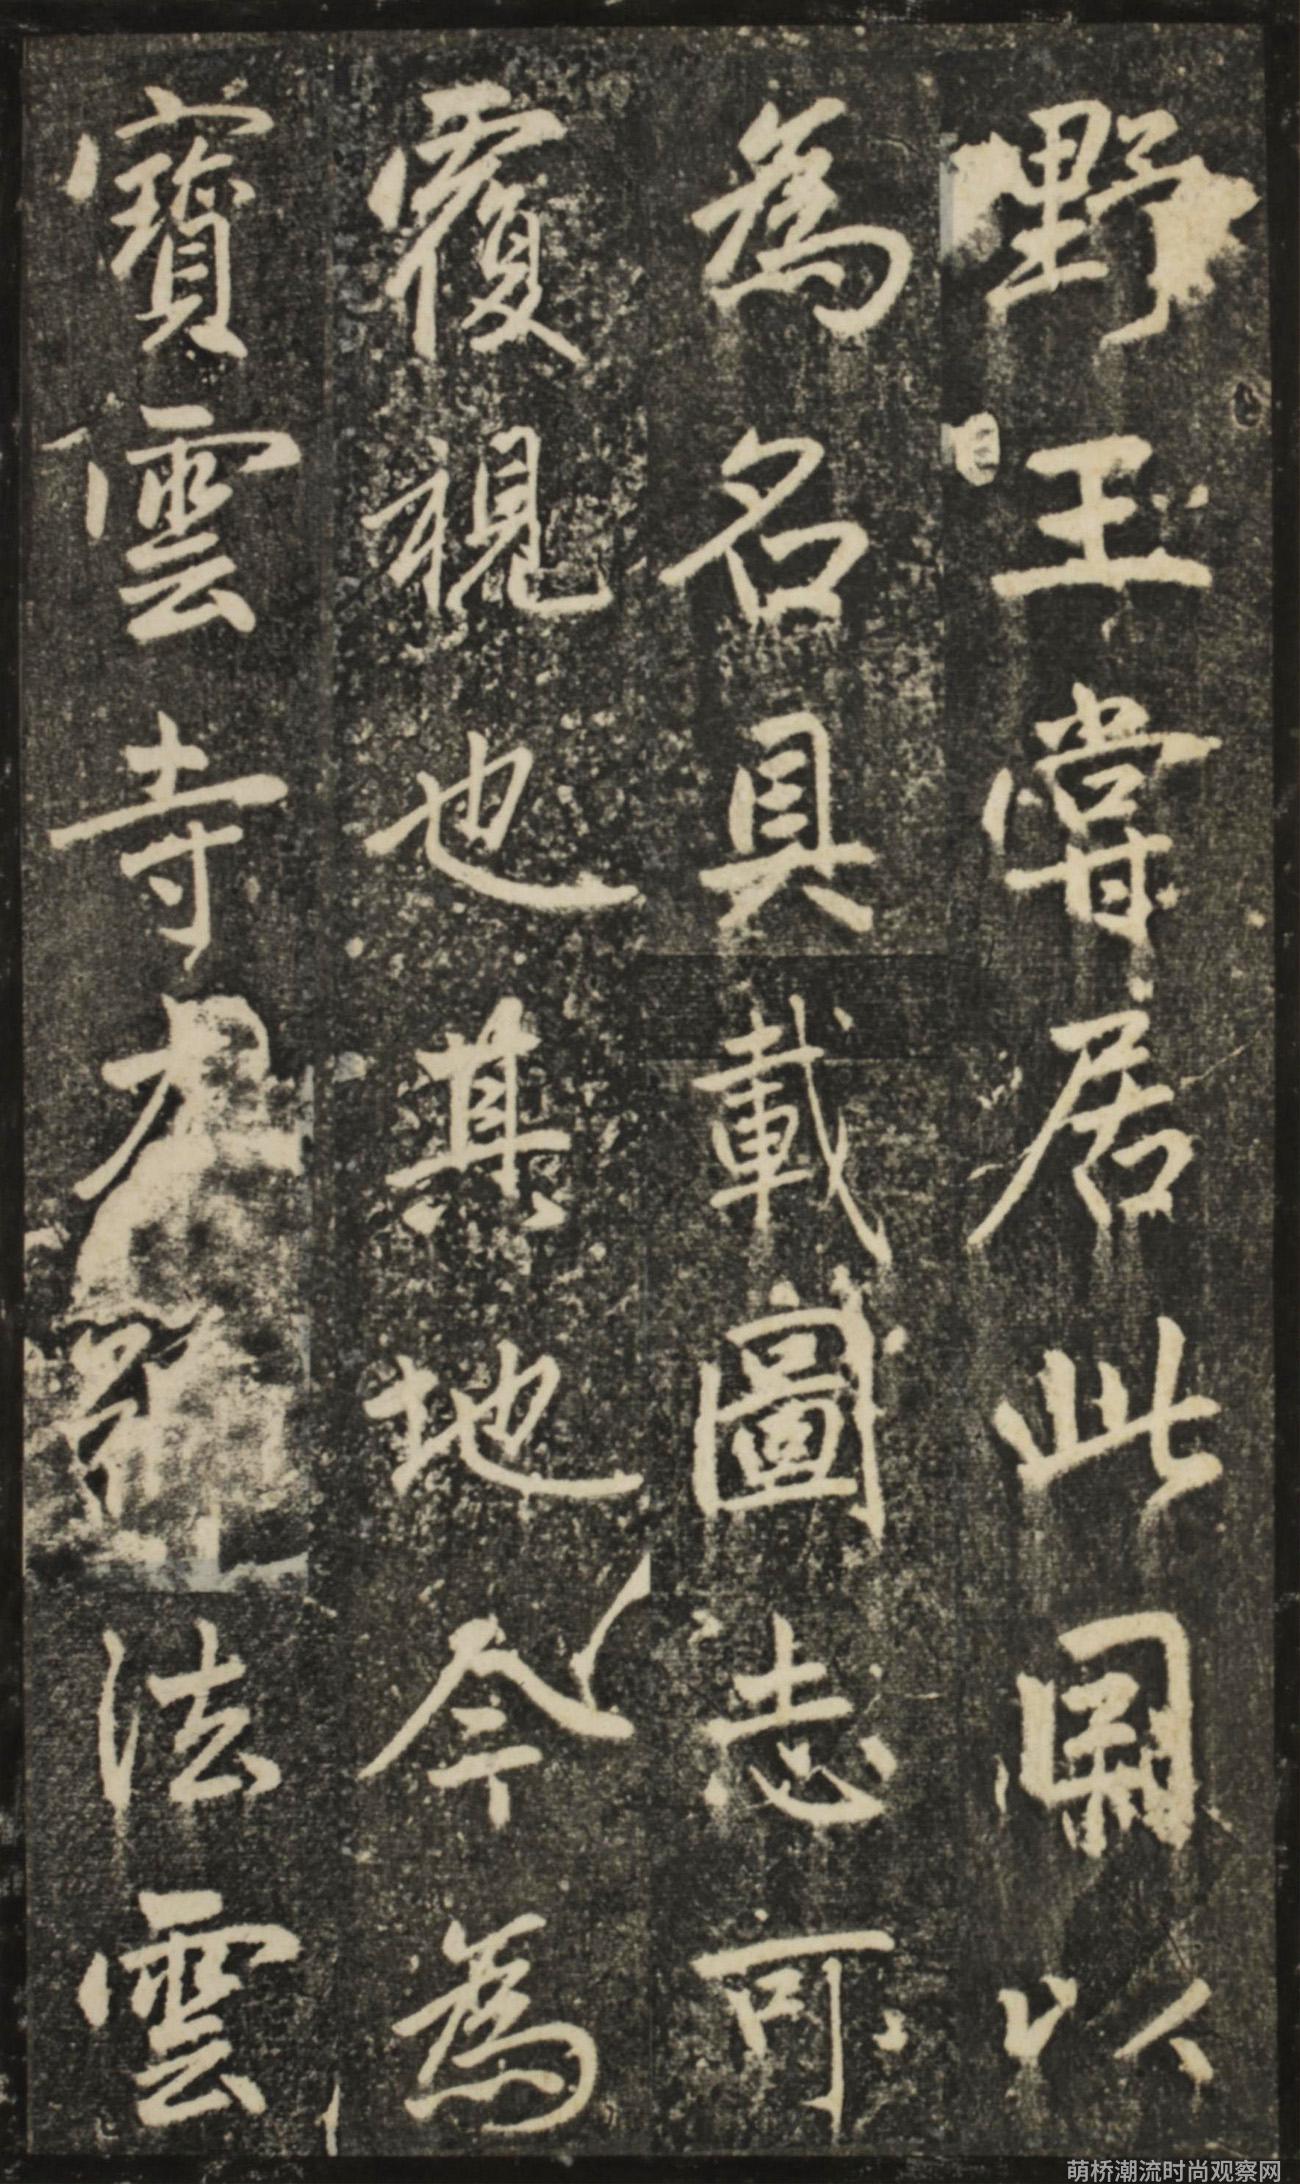 野王嘗居此以
為名具載圖志可
覆視也其地今為
寶雲寺法雲
萌桥潮流时尚观察网